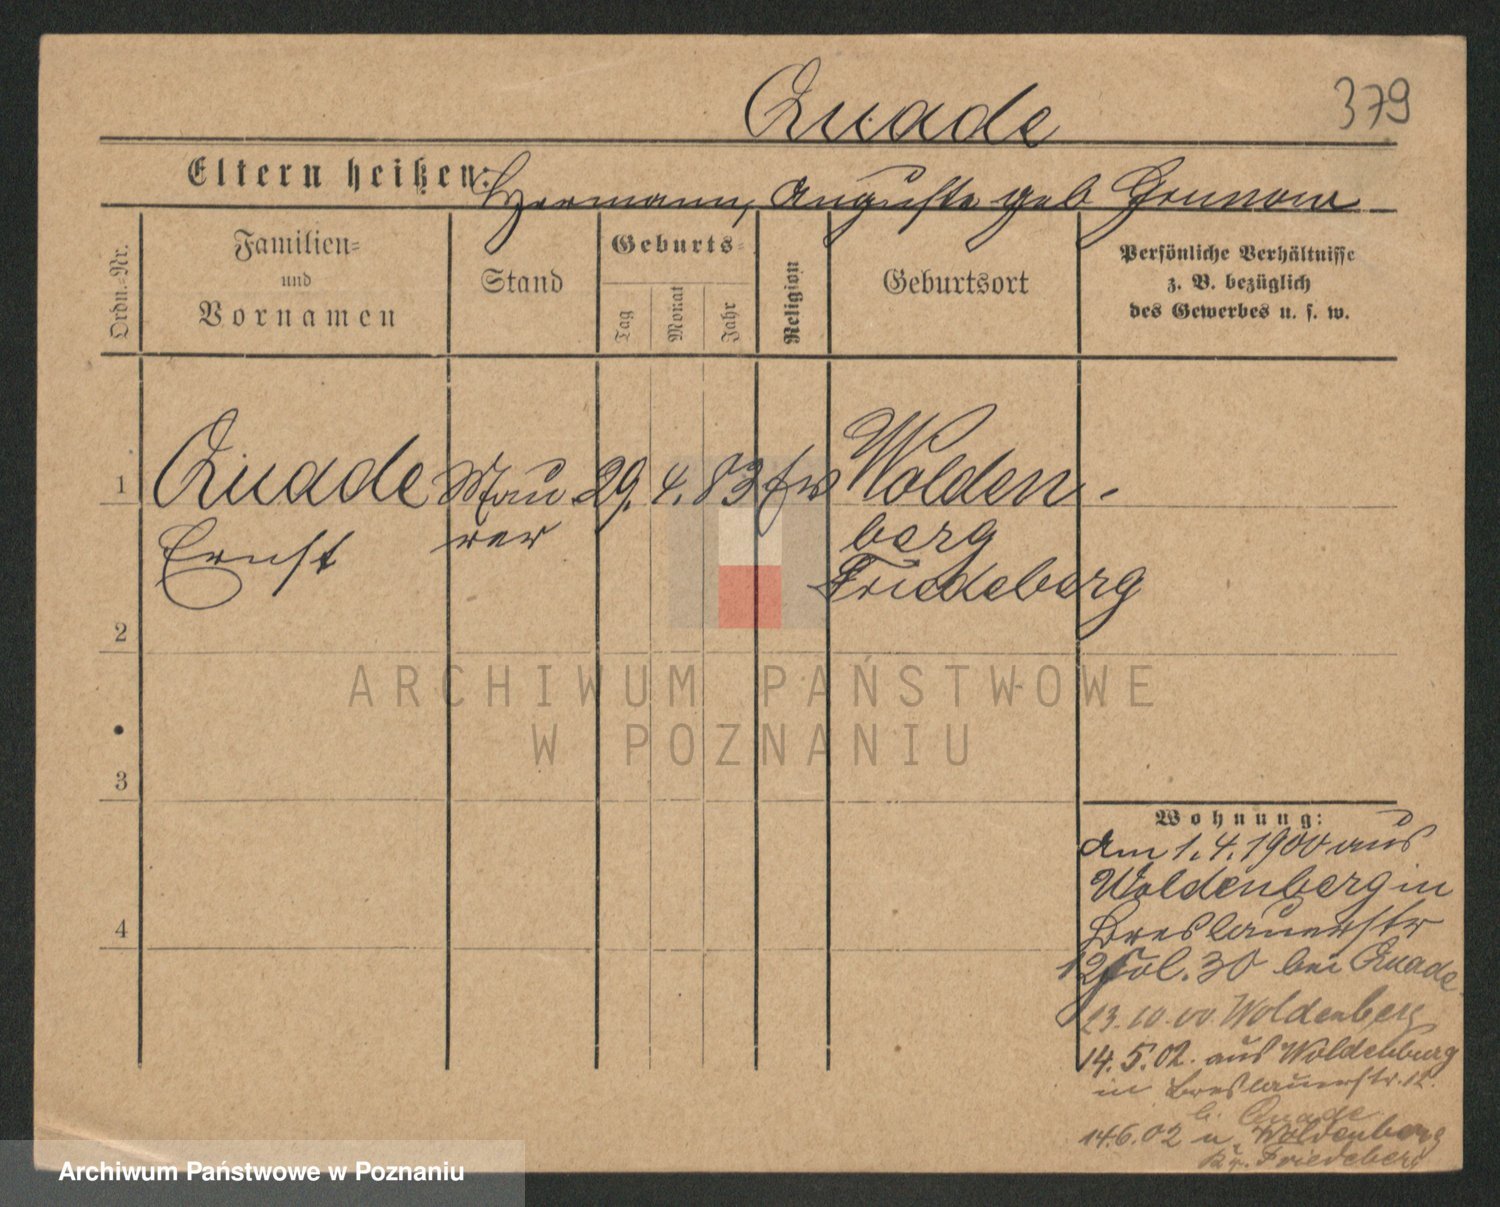 Quade
379
Eltern heißen: Hermann, Auguste geb Grunow
Ordn.-Nr.
Familien-
und
Vornamen
Stand
Geburts-
Tag
Monat
Jahr
Religion
Geburtsort
Persönliche Verhältnisse
z. B. bezüglich
des Gewerbes u. s. w.
1 Quade Mau 29. 4. 83 ev Wolden-
Ernst rer berg
Friedeberg
2
3
4
Wohnung:
Am 1.4.1900 aus
Woldenberg in
Breslauerstr
12 Pol. 30 bei Quade
23.10.00 Woldenberg
14.5.02. aus Woldenburg
in Breslauerstr. 12.
b. Quade
14.6.02 n. Woldenberg
Kr. Friedeberg
ARCHIWUM PAŃSTWOWE
W POZNANIU
Archiwum Państwowe w Poznaniu